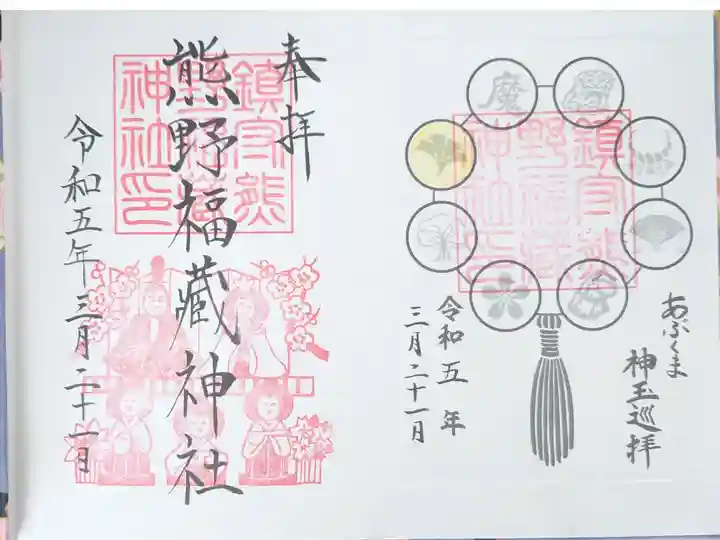 あぶくま
神玉巡拝
魔
鎮守熊
野福蔵
神社印
令和五年
三月二十一日
奉拝
熊野福藏神社
鎮守熊
野福蔵
神社印
令和五年三月二十一日